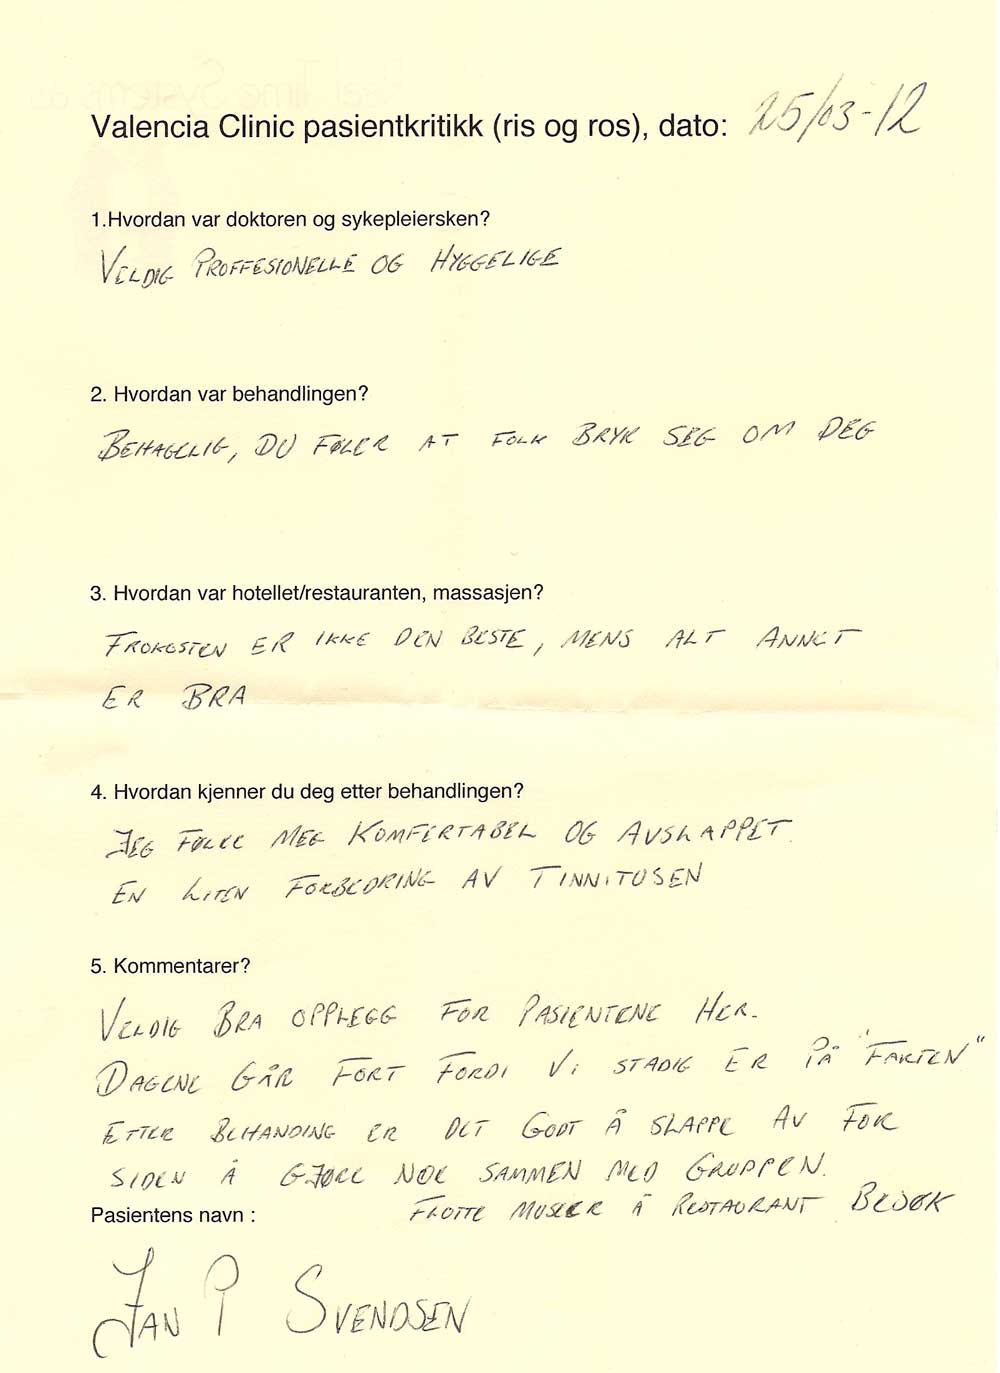 Valencia Clinic pasientkritikk (ris og ros), dato: 25/03-12
1.Hvordan var doktoren og sykepleiersken?
VELDIG PROFFESIONELLE OG HYGGELIGE
2. Hvordan var behandlingen?
BEHAGELIG, DU FØLER AT FOLK BRYR SEG OM DEG
3. Hvordan var hotellet/restauranten, massasjen?
FROKOSTEN ER IKKE DEN BESTE, MENS ALT ANNET
ER BRA
4. Hvordan kjenner du deg etter behandlingen?
JEG FØLER MEG KOMFERTABEL OG AVSLAPPET.
EN LITEN FORBEDRING AV TINNITUSEN
5. Kommentarer?
VELDIG BRA OPPLEGG FOR PASIENTENE HER.
DAGENE GÅR FORT FORDI VI STADIG ER PÅ "FARTEN"
ETTER BEHANDING ER DET GODT Å SLAPPE AV FOR
SIDEN Å GJØRE NOE SAMMEN MED GRUPPEN.
Pasientens navn : FLOTTE MUSEER Å RESTAURANT BESØK
JAN P SVENDSEN